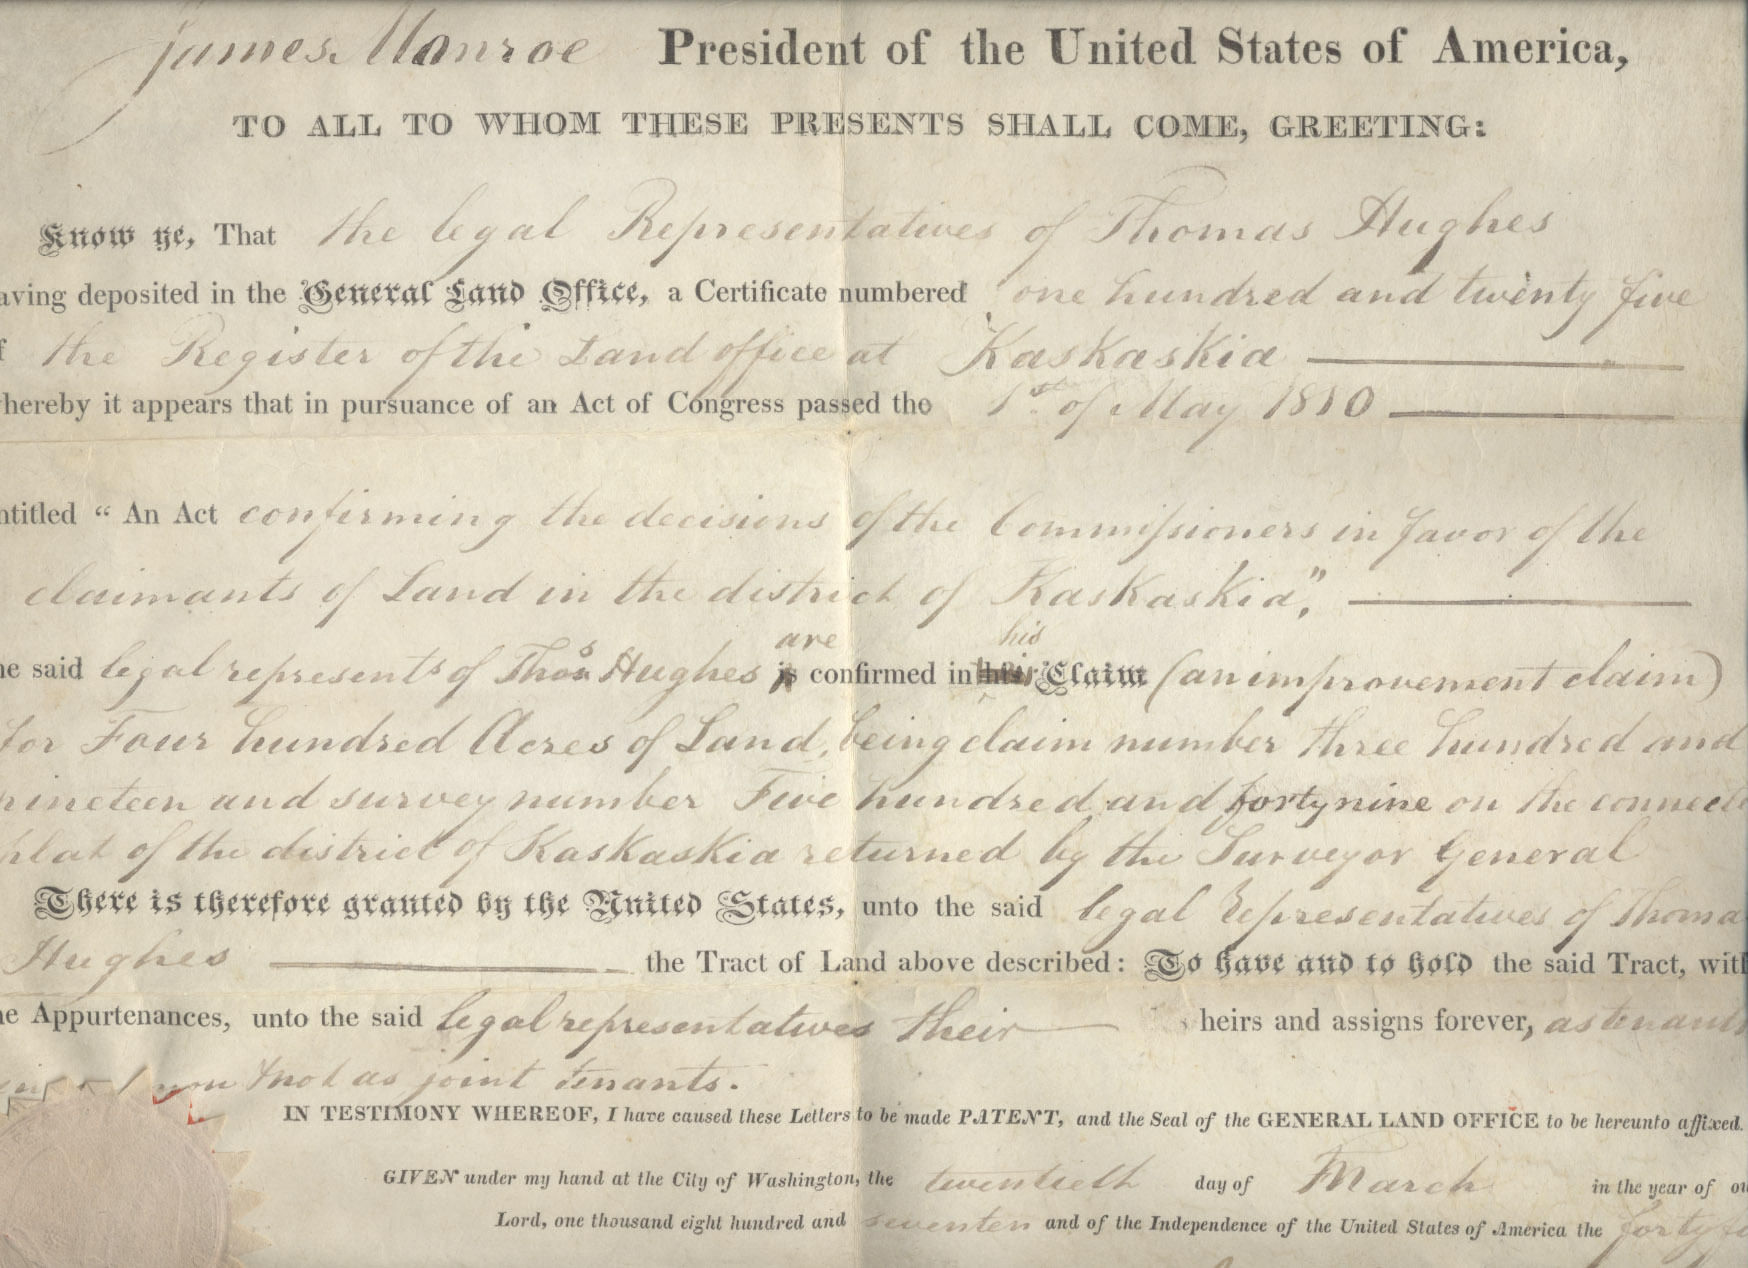 James Monroe President of the United States of America,
TO ALL TO WHOM THESE PRESENTS SHALL COME, GREETING:
Know ye, That the legal Representatives of Thomas Hughes
aving deposited in the General Land Office, a Certificate numbered one hundred and twenty five
f the Register of the Land office at Kaskaskia
hereby it appears that in pursuance of an Act of Congress passed the 1st of May 1810
ntitled “ An Act confirming the decisions of the Commissioners in favor of the
claimants of Land in the district of Kaskaskia",
are his
he said legal represents of Thos Hughes is confirmed in Claim (an improvement claim)
for Four hundred Acres of Land, being claim number three hundred and
nineteen and survey number Five hundred and forty nine on the connecte
plat of the district of Kaskaskia returned by the Surveyor General
There is therefore granted by the United States, unto the said legal Representatives of Thoma
Hughes the Tract of Land above described: To have and to hold the said Tract, with
he Appurtenances, unto the said legal representatives their heirs and assigns forever, as tenants
not as joint tenants.
IN TESTIMONY WHEREOF, I have caused these Letters to be made PATENT, and the Seal of the GENERAL LAND OFFICE to be hereunto affixed.
GIVEN under my hand at the City of Washington, the twentieth day of March in the year of ou
Lord, one thousand eight hundred and seventen and of the Independence of the United States of America the forty fi